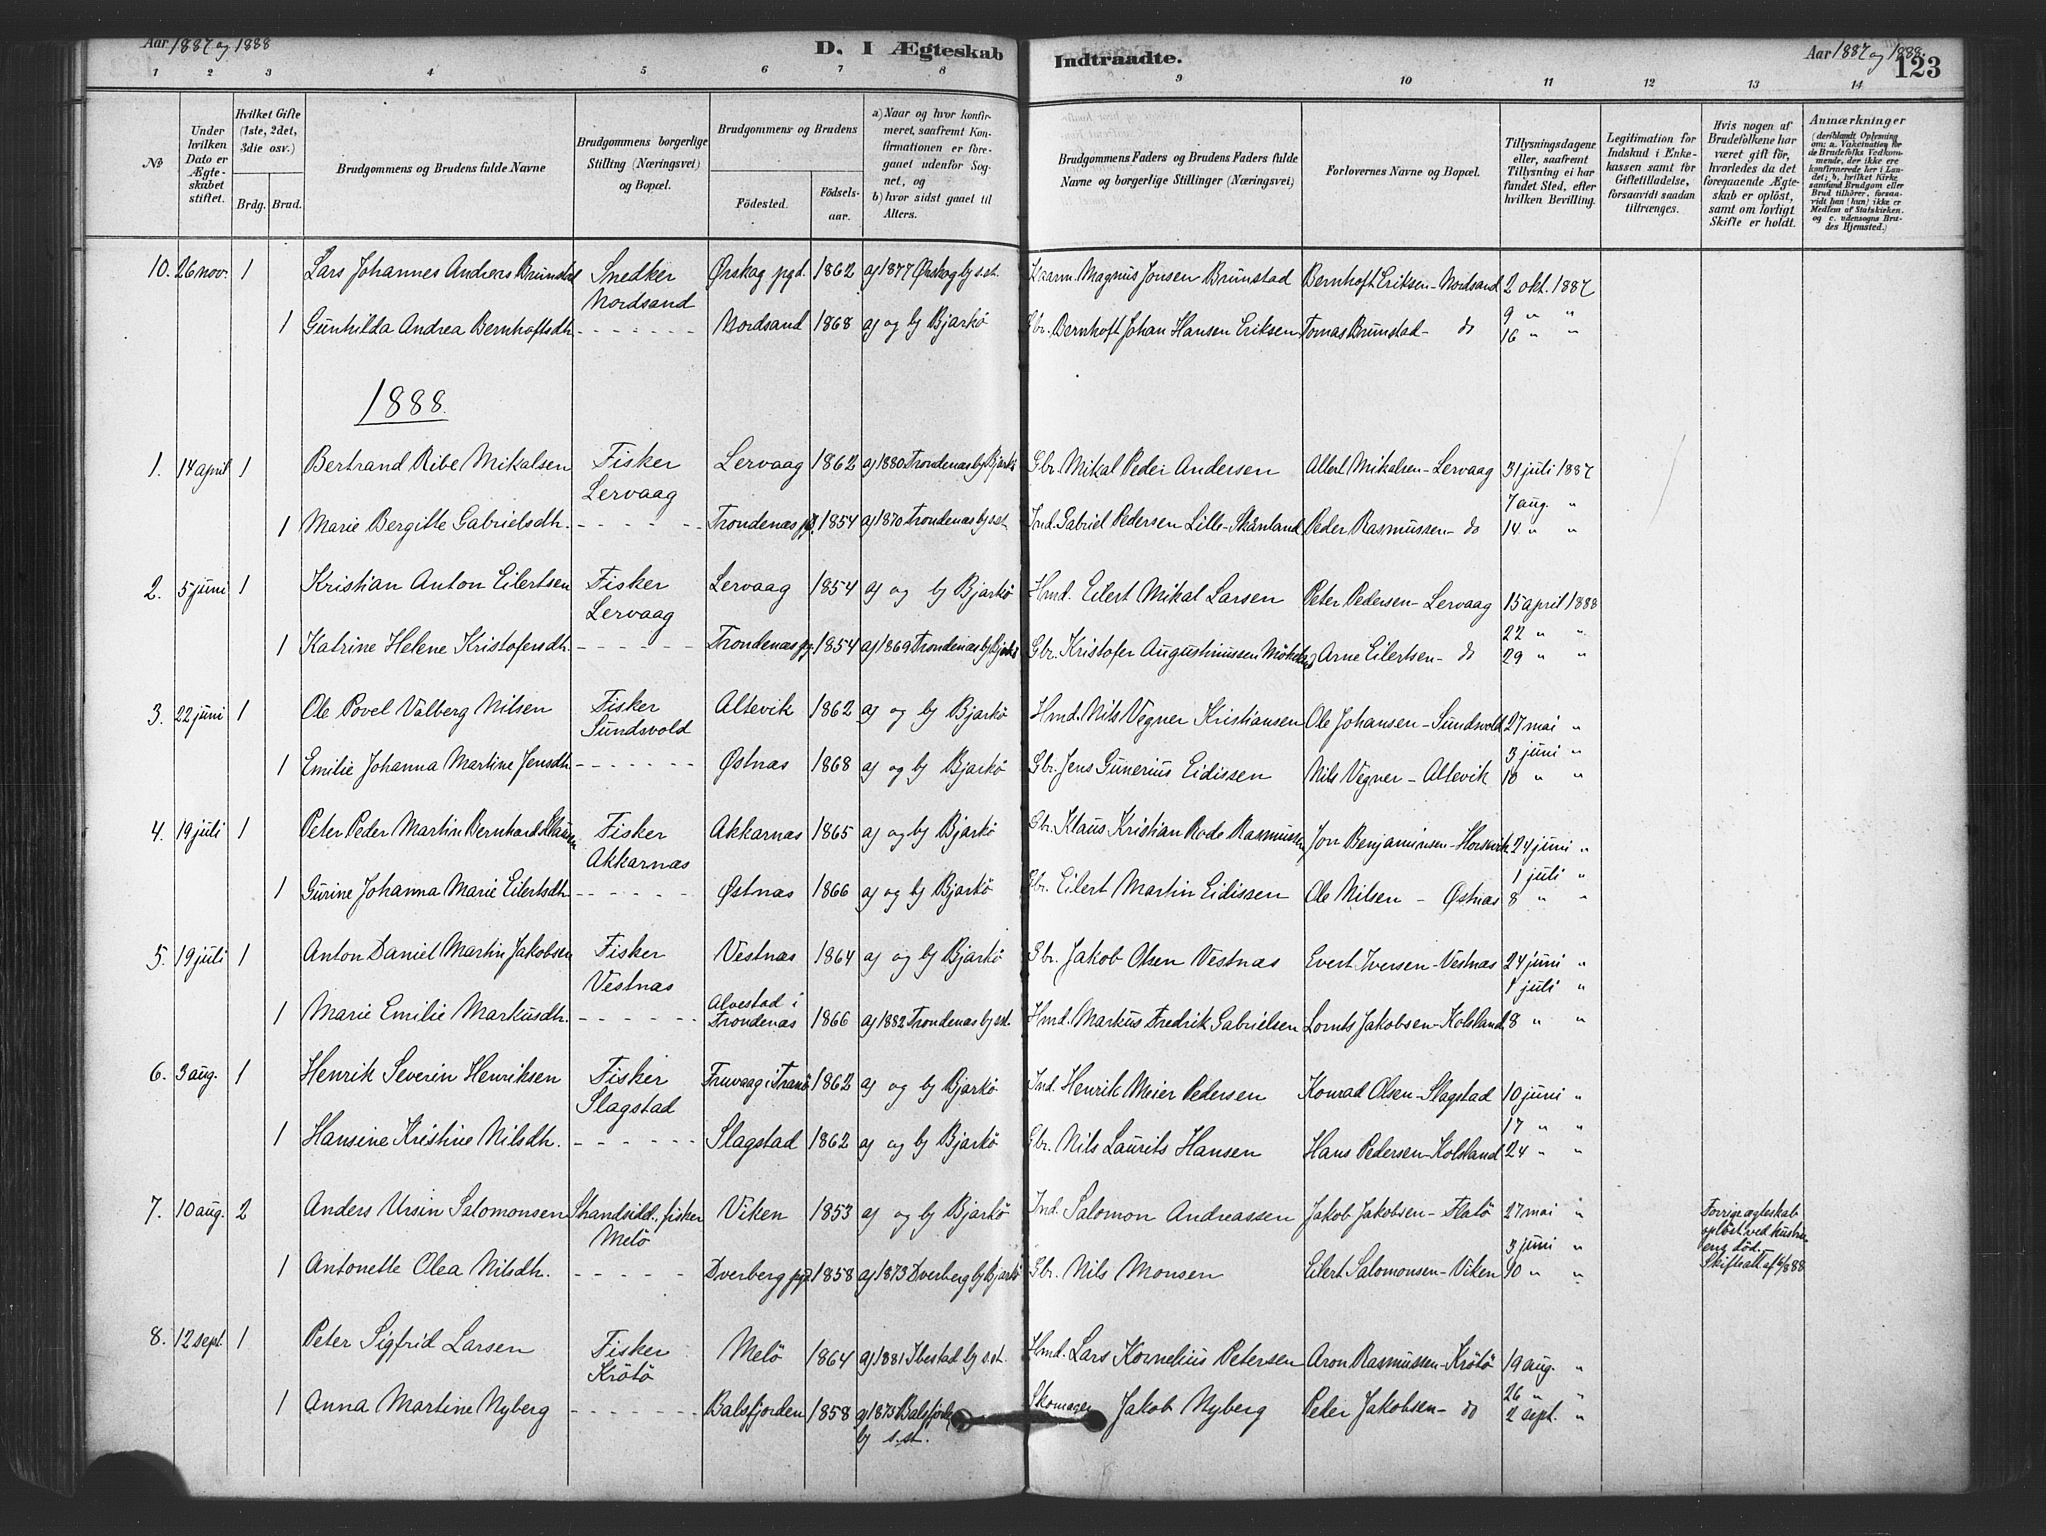 Aar 1887 og 1888
D. I Ægteskab Indtraadte.
Aar 1887 og 1888.
123
1 2 3 4 5 6 7 8 9 10 11 12 13 14
No
Under hvilken Dato er Ægteskabet stiftet.
Hvilket Gifte (1ste, 2det, 3die osv.)
Brdg. Brud.
Brudgommens og Brudens fulde Navne
Brudgommens borgerlige Stilling (Næringsvei) og Bopæl.
Brudgommens og Brudens
Födested. Födselsaar.
a) Naar og hvor konfirmeret, saafremt Konfirmationen er foregaaet udenfor Sognet, og
b) hvor sidst gaaet til Alters.
Brudgommens Faders og Brudens Faders fulde Navne og borgerlige Stillinger (Næringsvei)
Forlovernes Navne og Bopæl.
Tillysningsdagene eller, saafremt Tillysning ei har fundet Sted, efter hvilken Bevilling.
Legitimation for Indskud i Enkekassen samt for Giftetilladelse, forsaavidt saadan tiltrænges.
Hvis nogen af Brudefolkene har været gift før, hvorledes da det foregaaende Ægteskab er oplöst, samt om lovligt Skifte er holdt.
Anmærkninger
(deriblandt Oplysning om: a. Vakcination for de Brudefolks Vedkommende, der ikke ere konfirmerede her i Landet; b. hvilket Kirkesamfund Brudgom eller Brud tilhörer, forsaavidt han (hun) ikke er Medlem af Statskirken. og c. udensogns Brudes Hjemsted.)
10. 26 nov. 1 Lars Johannes Andreas Brunstad Snedker Ørskog pgd. 1862 a) 1877 Ørskog b) s. st. Kaarm. Magnus Jonsen Brunstad Bernhoft Eriksen - Nordsand 2 okt. 1887
Nordsand 9 " "
1 Gunhilda Andrea Bernhoftsdh. - - - - - - Nordsand 1868 a) og b) Bjarkö Gbr. Bernhoft Johan Hansen Eriksen Tomas Brunstad - do 16 " "
1888.
1. 14 april 1 Bertrand Ribe Mikalsen Fisker Lervaag 1862 a) 1880 Trondenæs b) Bjarkö Gbr. Mikal Peder Andersen Albert Mikalsen - Lervaag 31 juli 1887
Lervaag 7 aug. "
1 Marie Bergitte Gabrielsdh. - - - - - - Trondenæs pg. 1854 a) 1870 Trondenæs b) s. st. Ind. Gabriel Pedersen Lille-Skånland Peder Rasmussen - do 14 " "
2. 5 juni 1 Kristian Anton Eilertsen Fisker Lervaag 1854 a) og b) Bjarkö Hmd. Eilert Mikal Larsen Peter Pedersen - Lervaag 15 april 1888
Lervaag 22 " "
1 Katrine Helene Kristofersdh. - - - - - - Trondenæs pg. 1854 a) 1869 Trondenæs b) Bjarkö Gbr. Kristofer Augustinussen Arne Eilertsen - do 29 " "
3. 22 juni 1 Ole Povel Valberg Nilsen Fisker Altevik 1862 a) og b) Bjarkö Hmd. Nils Vegner Kristiansen Ole Johansen - Sundsvold 27 mai "
Sundsvold 3 juni "
1 Emilie Johanna Martine Jensdh. - - - - - - Østnæs 1868 a) og b) Bjarkö Gbr. Jens Gunerius Eidissen Nils Vegner - Altevik 10 " "
4. 19 juli 1 Peter Peder Martin Bernhard Klausen Fisker Akkarnæs 1865 a) og b) Bjarkö Gbr. Klaus Kristian Rode Rasmussen Jon Benjaminsen - 24 juni "
Akkarnæs 1 juli "
1 Gurine Johanna Marie Eilertsdh. - - - - - - Østnæs 1866 a) og b) Bjarkö Gbr. Eilert Martin Eidissen Ole Nilsen - Østnæs 8 " "
5. 19 juli 1 Anton Daniel Martin Jakobsen Fisker Vestnæs 1864 a) og b) Bjarkö Gbr. Jakob Olsen Vestnæs Evert Iversen - Vestnæs 24 juni "
Vestnæs 1 juli "
1 Marie Emilie Markusdh. - - - - - - Alvestad i Trondenæs 1866 a) 1882 Trondenæs b) s. st. Hmd. Markus Fredrik Gabrielsen Lornts Jakobsen - Kolsland 8 " "
6. 3 aug. 1 Henrik Severin Henriksen Fisker Fruvaag i Tranö 1862 a) og b) Bjarkö Ind. Henrik Meier Pedersen Konrad Olsen - Slagstad 10 juni "
Slagstad 17 " "
1 Hansine Kristine Nilsdh. - - - - - - Slagstad 1862 a) og b) Bjarkö Gbr. Nils Laurits Hansen Hans Pedersen - Kolsland 24 " "
7. 10 aug. 2 Anders Ursin Salomonsen Strandsidd., fisker Viken 1853 a) og b) Bjarkö Ind. Salomon Andreassen Jakob Jakobsen - Flatö 27 mai " Forrige ægteskab opløst ved hustruens død. Skifteatt. af 4/8 88
Melö 3 juni "
1 Antonette Olea Nilsdh. - - - - - Dverberg pgd. 1858 a) 1873 Dverberg b) Bjarkö Gbr. Nils Monsen Eilert Salomonsen - Viken 10 " "
8. 12 sept. 1 Peter Sigfrid Larsen Fisker Melö 1864 a) 1881 Ibestad b) s. st. Hmd. Lars Kornelius Petersen Aron Rasmussen - Krötö 19 aug. "
Krötö 26 " "
1 Anna Martine Nyberg - - - - - - Balsfjorden 1858 a) 1873 Balsfjord b) s. st. Skomager Jakob Nyberg Peder Jakobsen - do 2 sept. "